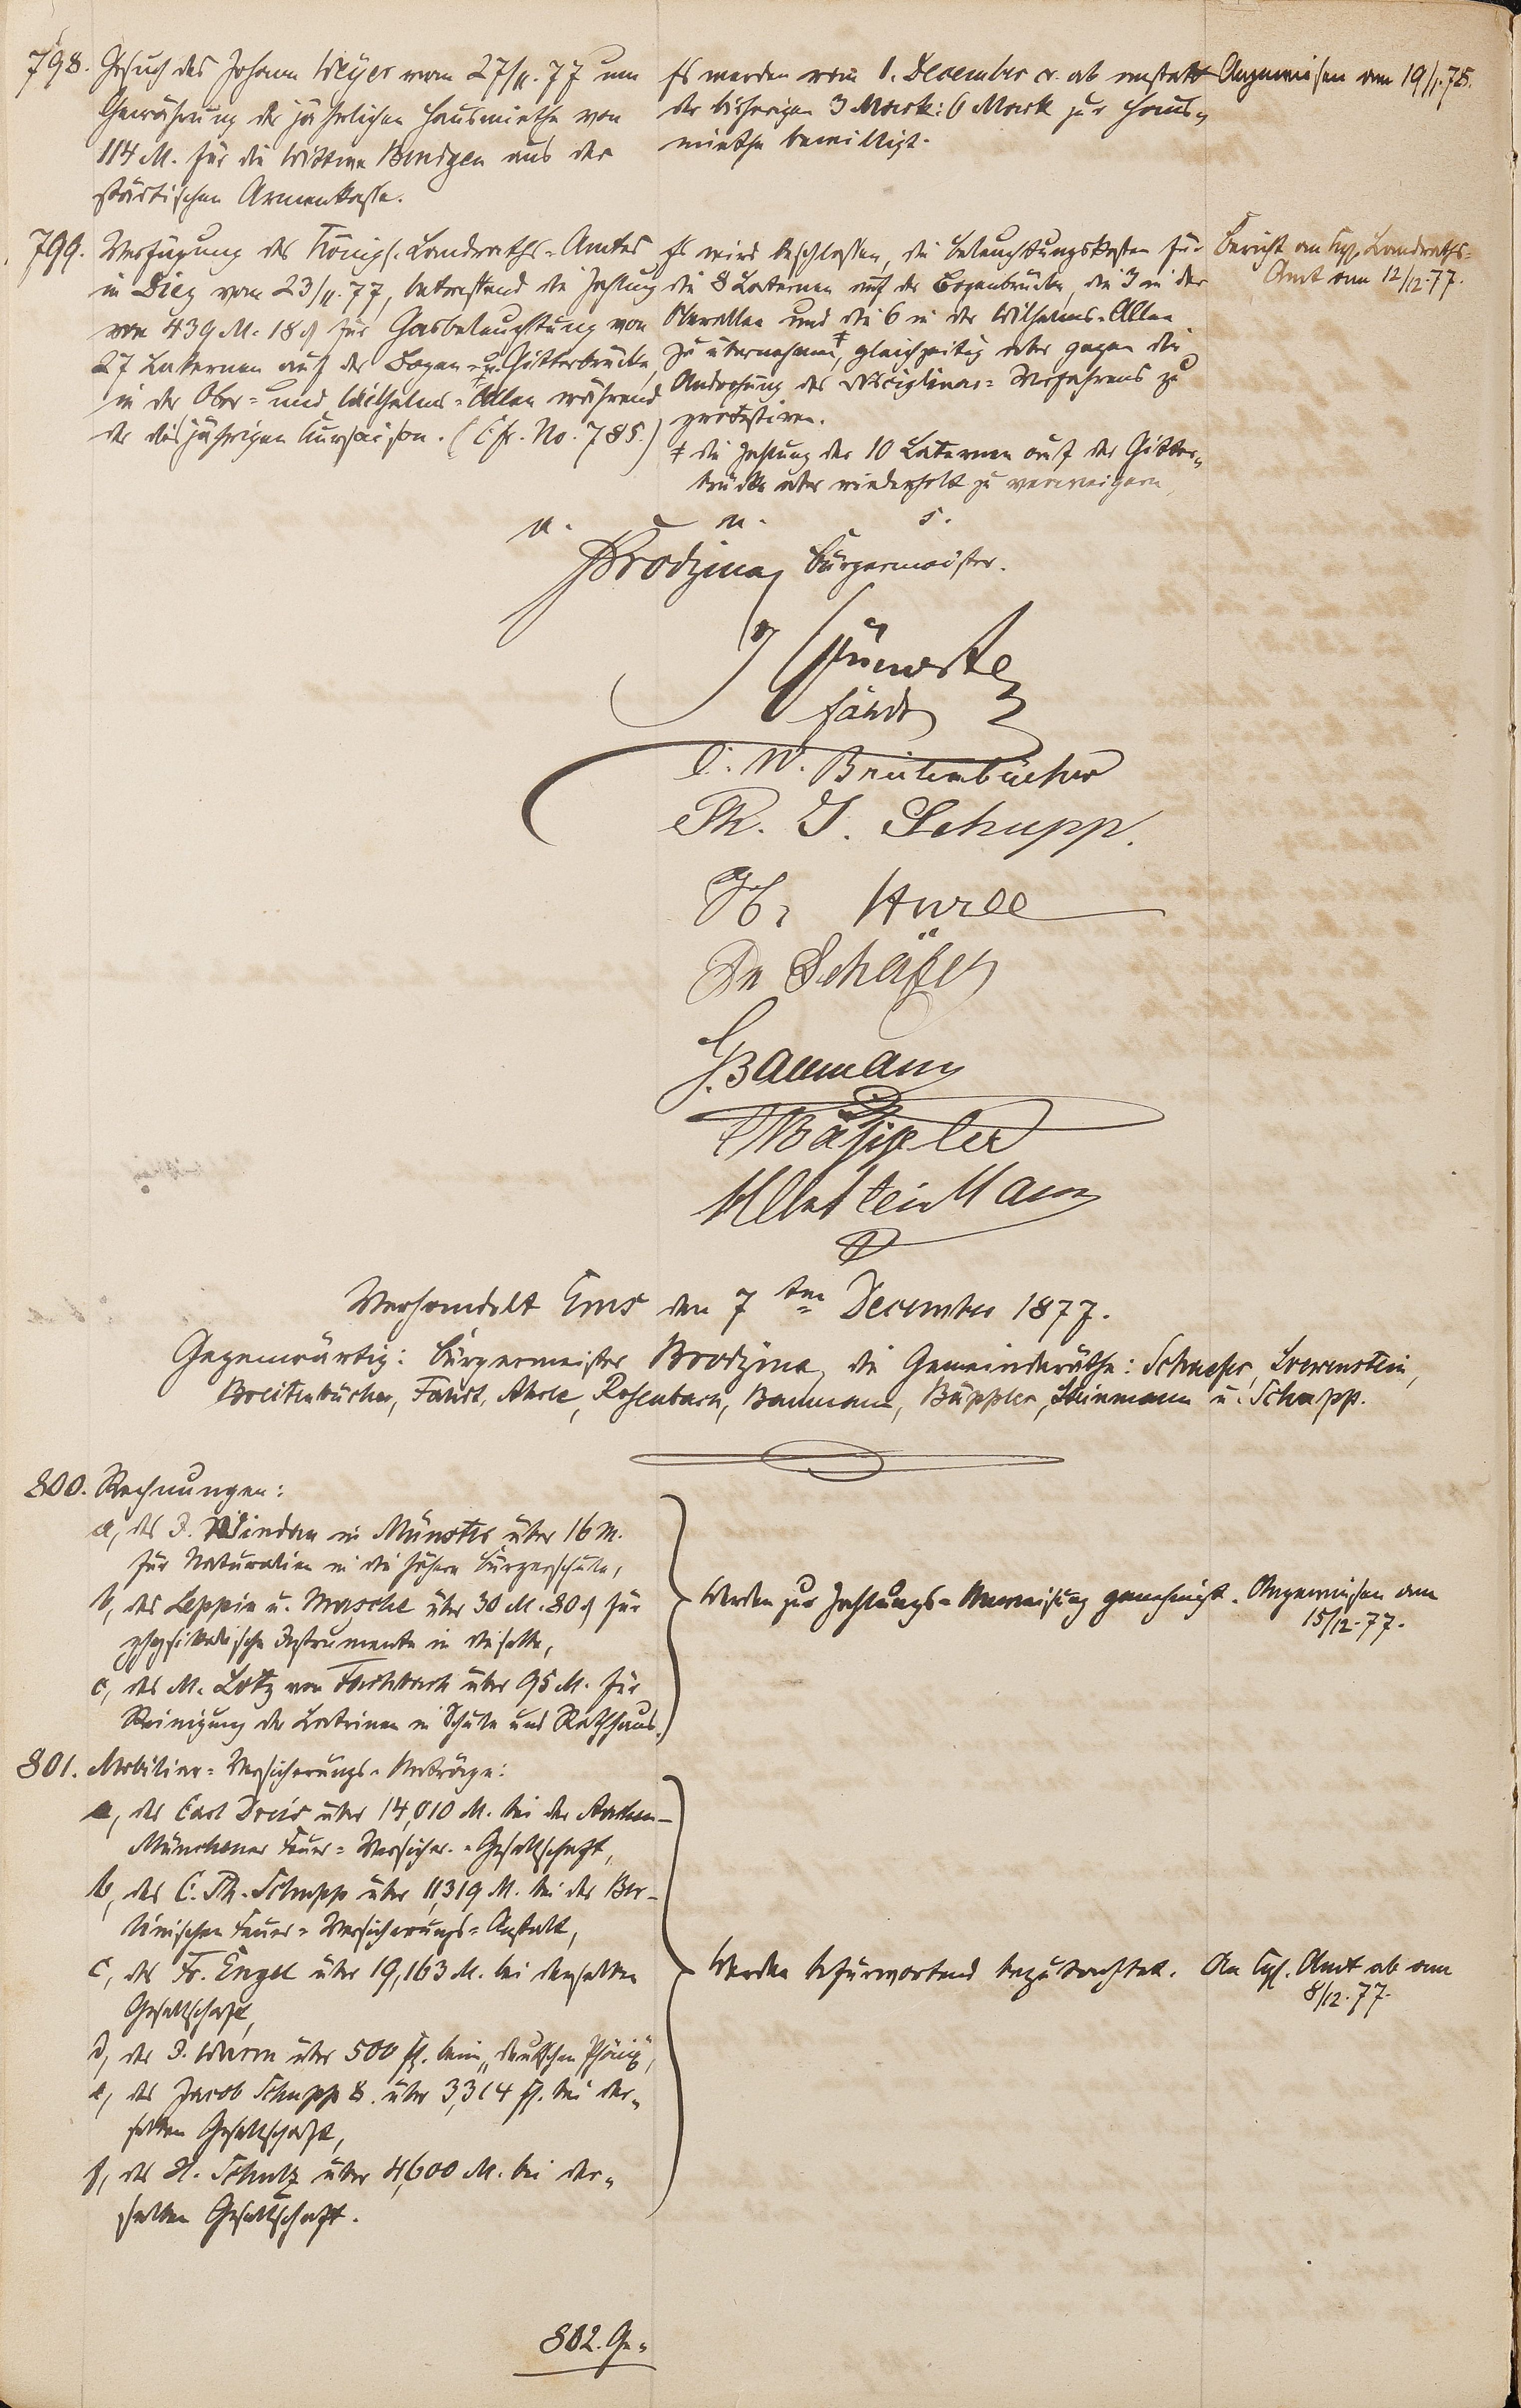 798. Gesuch des Johann Weyer vom 27/11. 77 um
Gewährung der jährlichen Hausmiethe von
114 M. für die Wittwe Bindgen aus der
städtischen Armenkasse.
Es werden vom 1. December cr. ab anstatt
der bisherigen 3 Mark: 6 Mark zur Haus-
miethe bewilligt.
Angewiesen am 19/1. 78.
799. Verfügung des Königl. Landraths-Amtes
in Diez vom 23/11. 77, betreffend die Zahlung
von 439 M. 18 ₰ für Gasbeleuchtung von
27 Laternen auf der Bogen- u. Gitterbrücke,
in der Ober- und Wilhelms-Allee während
der diesjährigen Kursaison. (Cfr. No. 785.)
Es wird beschlossen, die Beleuchtungskosten für
die 8 Laternen auf der Bogenbrücke, die 3 in der
Oberallee und die 6 in der Wilhelms-Allee
zu übernehmen ‡, gleichzeitig aber gegen die
Androhung des Disciplinar-Verfahrens zu
protestiren.
‡ die Zahlung der 10 Laternen auf der Gitter-
brücke aber wiederholt zu verweigern,
Bericht an Kgl. Landraths-
Amt vom 12/12. 77.
u. m. s.
Brodzina, Bürgermeister.
Fährdt
C. W. Breitenbücher
Th. J. Schupp.
H. Ahrle
Dr Schäfer
G. Baumann
Bäppler
Steinmann
Verhandelt Ems den 7ten December 1877.
Gegenwärtig: Bürgermeister Brodzina, die Gemeinderäthe: Schaefer, Loewenstein,
Breitenbücher, Fährdt, Ahrle, Rosenbach, Baumann, Bäppler, Steinmann u. Schupp.
800. Rechnungen:
a, des J. Windau in Münster über 16 M.
für Naturalien in die höhere Bürgerschule,
b, des Leppin u. Masche über 30 M. 80 ₰ für
physikalische Instrumente in dieselbe,
c, des M. Lotz von Fachbach über 95 M. für
Reinigung der Latrinen in Schule und Rathhaus.
Werden zur Zahlungs-Anweisung genehmigt.
Angewiesen am
15/12. 77.
801. Mobiliar-Versicherungs-Anträge:
a, des Carl Dreis über 14,010 M. bei der Aachen-
Münchener Feuer-Versicher.-Gesellschaft,
b, des C. Th. Schupp über 11,319 M. bei der Ber-
linischen Feuer-Versicherungs-Anstalt,
c, des Fr. Engel über 19,163 M. bei derselben
Gesellschaft,
d, des J. Wurm über 500 fl. beim „deutschen Phönix",
e, des Jacob Schupp 8. über 3,314 fl. bei der-
selben Gesellschaft,
f, des H. Schulz über 4,600 M. bei der-
selben Gesellschaft.
Werden befürwortend begutachtet.
An Kgl. Amt ab am
8/12. 77.
802. Ge-